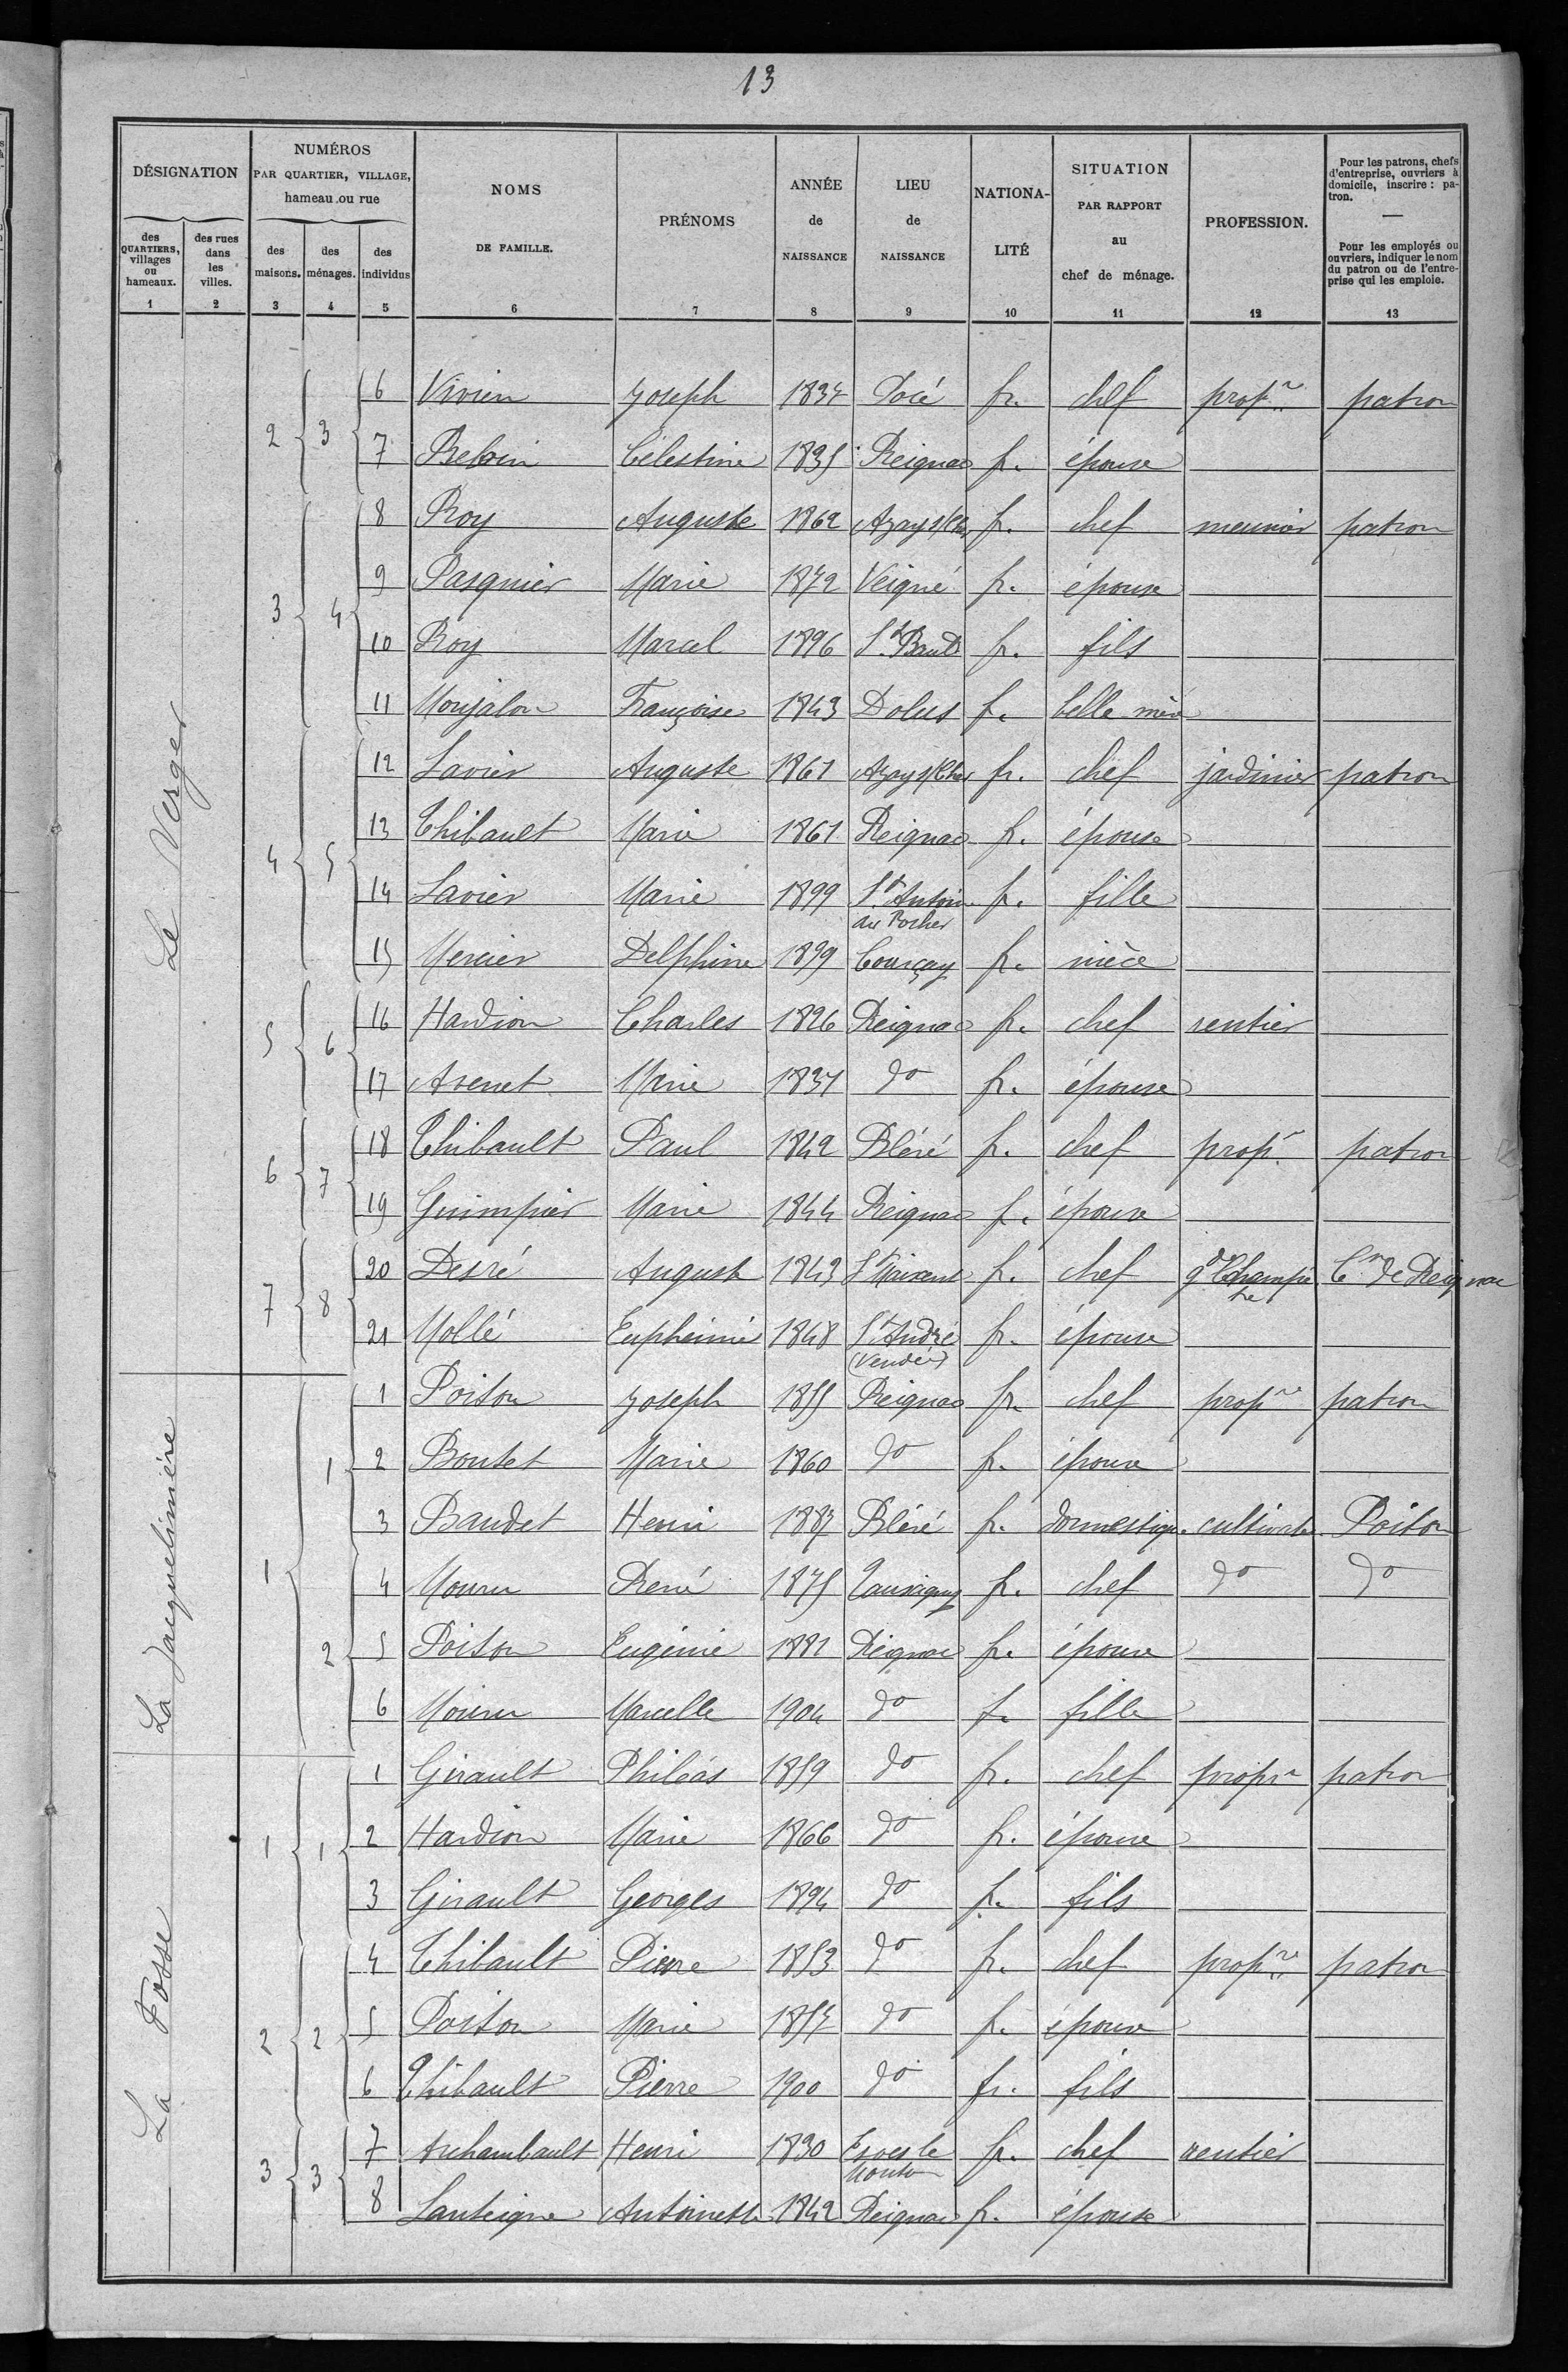 13
DÉSIGNATION
NUMÉROS
PAR QUARTIER, VILLAGE,
hameau ou rue
NOMS
DE FAMILLE.
PRÉNOMS
ANNÉE
de
NAISSANCE
LIEU
de
NAISSANCE
NATIONA-
LITÉ
SITUATION
PAR RAPPORT
au
chef de ménage.
PROFESSION.
Pour les patrons, chefs
d'entreprise, ouvriers à
domicile, inscrire : pa-
tron.
—
Pour les employés ou
ouvriers, indiquer le nom
du patron ou de l'entre-
prise qui les emploie.
des
QUARTIERS,
villages
ou
hameaux.
des rues
dans
les
villes.
des
maisons.
des
ménages.
des
individus
1 2 3 4 5 6 7 8 9 10 11 12 13
Le Verger
2 3 6 Vivien Joseph 1837 Pocé fr. chef propre patron
7 Beloin Célestine 1835 Reignac fr. épouse
3 4 8 Roy Auguste 1862 Azay s/Cher fr. chef meunier patron
9 Pasquier Marie 1872 Veigné fr. épouse
10 Roy Marcel 1896 St Bault fr. fils
11 Moujalon Françoise 1843 Dolus fr. belle mère
4 5 12 Lavier Auguste 1861 Azay s/Cher fr. chef jardinier patron
13 Thibault Marie 1861 Reignac fr. épouse
14 Lavier Marie 1899 St Antoine fr. fille
au Rocher
15 Mercier Delphine 1899 Courçay fr. nièce
5 6 16 Hardion Charles 1826 Reignac fr. chef rentier
17 Avenet Marie 1837 do fr. épouse
6 7 18 Thibault Paul 1842 Bléré fr. chef propr patron
19 Guimpier Marie 1844 Reignac fr. épouse
7 8 20 Desré Auguste 1843 St Maixent fr. chef gde Champêtre Cne de Reignac
21 Mollé Euphémie 1848 St André fr. épouse
(Vendée)
La Jacquelinière
1 1 1 Poiton Joseph 1855 Reignac fr. chef propre patron
2 Boutet Marie 1860 do fr. épouse
3 Baudet Henri 1887 Bléré fr. domestique cultivateur Poiton
2 4 Mouru René 1875 Tauxigny fr. chef do do
5 Poiton Eugénie 1881 Reignac fr. épouse
6 Mouru Marcelle 1904 do fr. fille
La Fosse
1 1 1 Girault Philéas 1859 do fr. chef propre patron
2 Hardion Marie 1866 do fr. épouse
3 Girault Georges 1894 do fr. fils
2 2 4 Thibault Pierre 1853 do fr. chef propre patron
5 Poiton Marie 1857 do fr. épouse
6 Thibault Pierre 1900 do fr. fils
3 3 7 Archambault Henri 1830 Esves le fr. chef rentier
Moutier
8 Lanteigne Antoinette 1842 Reignac fr. épouse